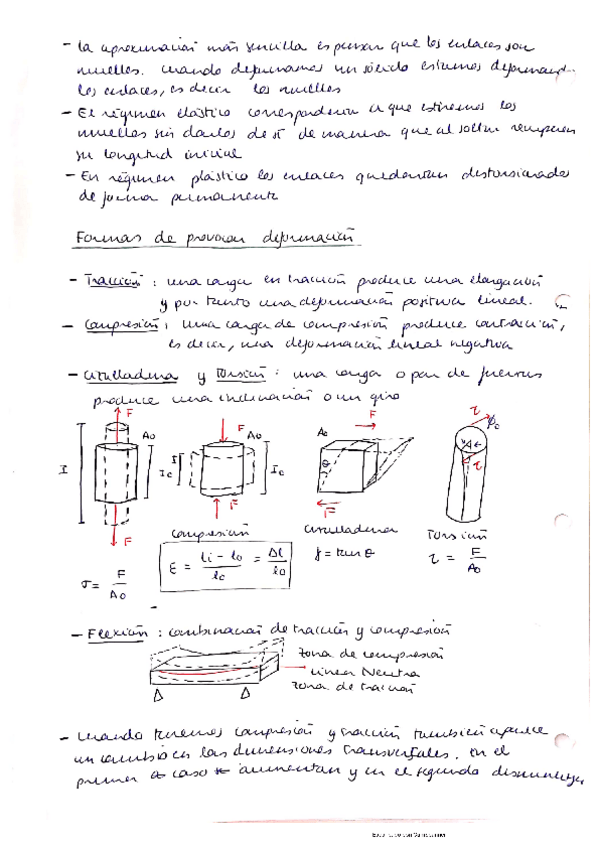 - la aproximación más sencilla es pensar que los enlaces son
muelles. Cuando deformamos un sólido estamos deformando
los enlaces, es decir los muelles
- El régimen elástico correspondería a que estiremos los
muelles sin darlos de sí de manera que al soltar recuperen
su longitud inicial
- En régimen plástico los enlaces quedarían distorsionados
de forma permanente
Formas de provocar deformación
- Tracción : una carga en tracción produce una elongación
y por tanto una deformación positiva lineal.
- Compresión : una carga de compresión produce contracción,
es decir, una deformación lineal negativa
- Cizalladura y Torsión : una carga o par de fuerzas
produce una inclinación o un giro
F F F τ φo
Ao Ao Ao
l lo l lo θ τ
F F F
compresión cizalladura Torsión
σ = F / Ao
ε = (li - lo) / lo = Δl / lo
γ = tan θ
τ = F / Ao
- Flexión : combinación de tracción y compresión
zona de compresión
Linea Neutra
zona de tracción
- Cuando tenemos compresión y tracción también aparece
un cambio en las dimensiones transversales. En el
primer caso aumentan y en el segundo disminuyen